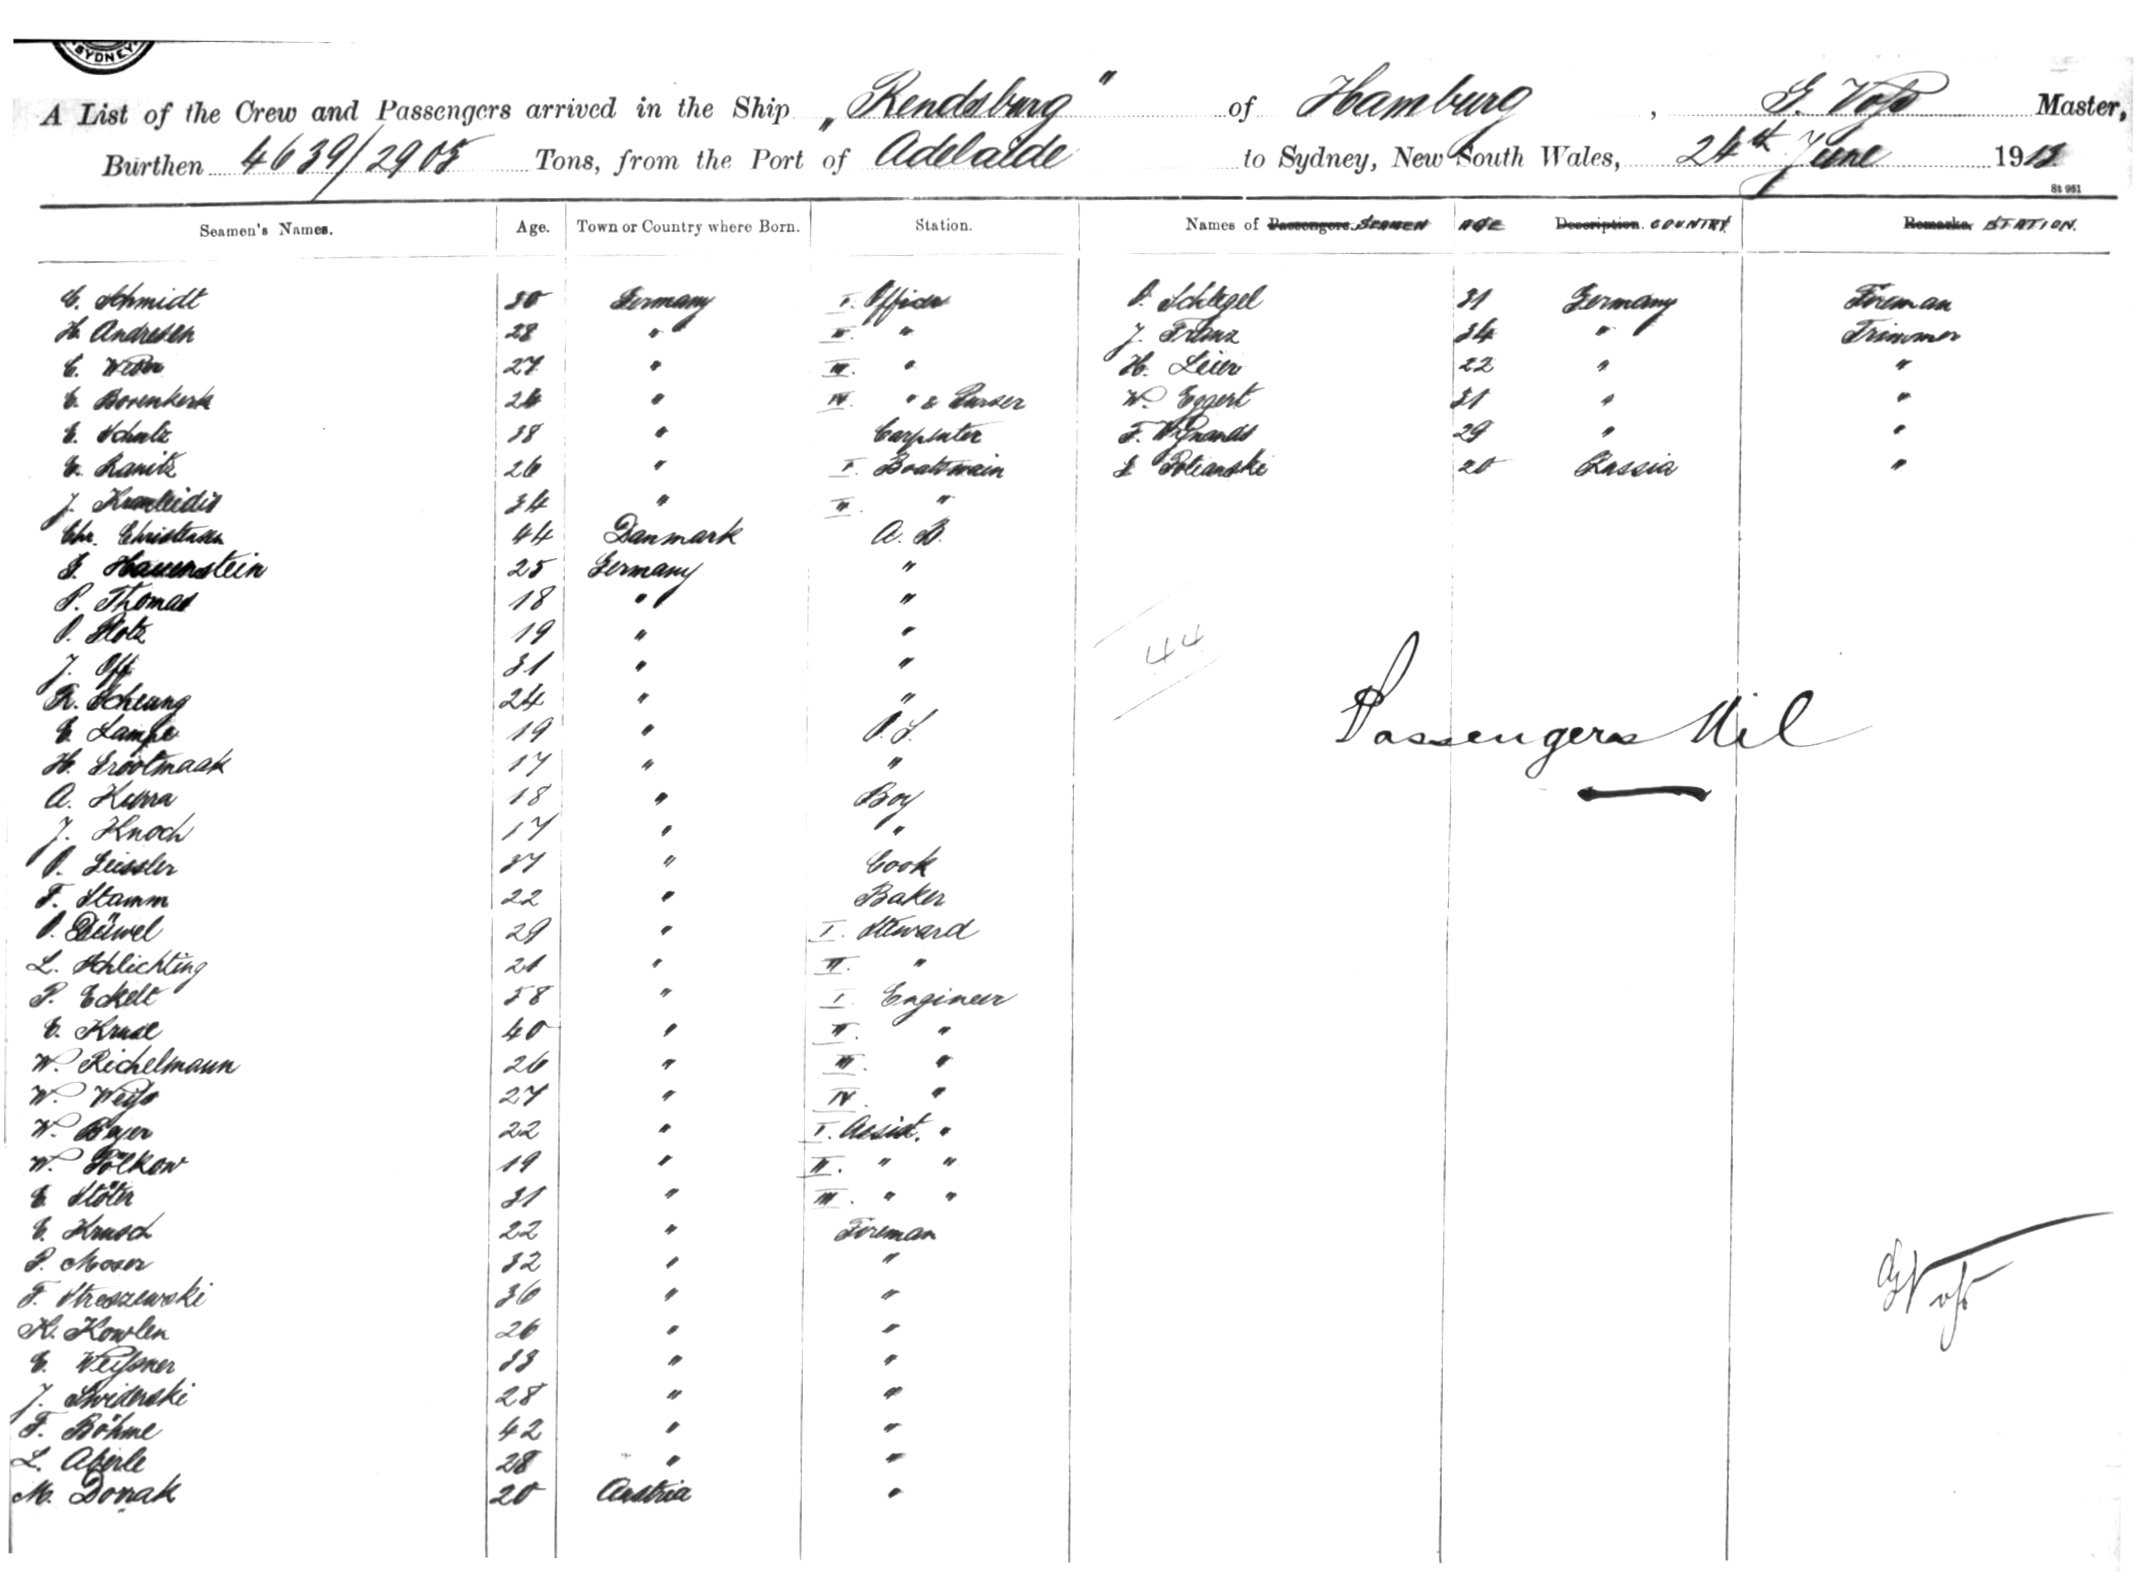 SYDNEY
A List of the Crew and Passengers arrived in the Ship „Rendsburg" of Hamburg, G. Voß Master,
Burthen 4639/2905 Tons, from the Port of Adelaide to Sydney, New South Wales, 24th June 191
St 961
Seamen's Names. Age. Town or Country where Born. Station. Names of Passengers. SEAMEN AGE Description. COUNTRY Remarks. STATION.
E. Schmidt 30 Germany I. Officer O. Schlegel 31 Germany Fireman
H. Andresen 28 " II. " J. Franz 34 " Trimmer
E. 27 " III. " H. Leier 22 " "
E. Borenkerk 26 " IV. " & Purser W. Eggert 31 " "
E. Schulz 38 " Carpenter F. Wynands 29 " "
E. Kanitz 26 " I. Boatswain Polianski 20 Russia "
J. 34 " II. "
Chr. Christensen 44 Danmark A. B.
G. Hauenstein 25 Germany "
P. Thomas 18 " "
O. Plotz 19 " "
J. Off 31 " "
R. Scheung 24 " "
E. Lampe 19 " O. S.
H. Grootmaak 17 " "
A. Kurra 18 " Boy
J. Knoch 17 " "
O. Geissler 37 " Cook
F. Stamm 22 " Baker
O. Düwel 29 " I. Steward
L. Schlichting 21 " II. "
P. Eckelt 58 " I. Engineer
E. Kruse 40 " II. "
W. Richelmann 26 " III. "
W. Weiß 27 " IV. "
W. Beyer 22 " I. Assist. "
W. Pölkow 19 " II. " "
E. Stöter 31 " III. " "
E. Krusch 22 " Fireman
P. Moser 32 " "
F. Streszewski 36 " "
K. Kowlen 26 " "
E. Weißner 33 " "
J. Swiderski 28 " "
F. Böhme 42 " "
L. Aberle 28 " "
M. Dorrak 20 Austria "
44
Passengers Nil
G Voß